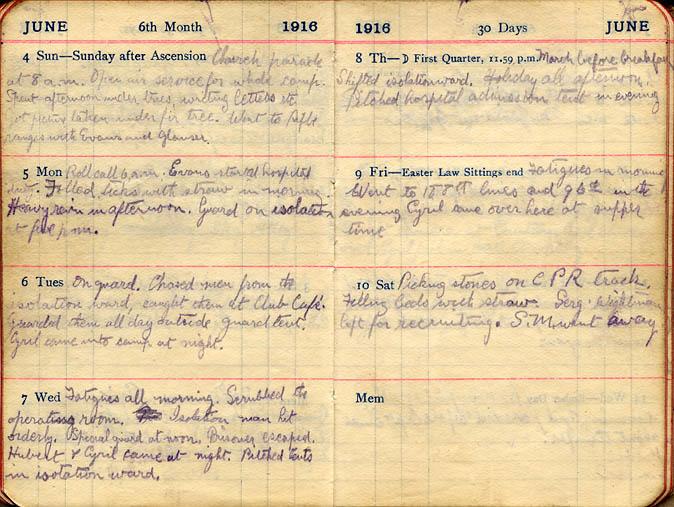 JUNE 6th Month 1916
4 Sun—Sunday after Ascension Church parade
at 8 a.m. Open air service for whole camp.
Spent afternoon under trees, writing letters etc
got picture taken under fir tree. Went to
ranges with Evans and Glauser.
5 Mon Roll call 6 a.m. Evans started hospital
Filled ticks with straw in morning
Heavy rain in afternoon. Guard on isolation
at five p.m.
6 Tues On guard. Chased men from the
isolation ward, caught them at Club Café.
Guarded them all day outside guard tent.
Cyril came into camp at night.
7 Wed Fatigues all morning. Scrubbed the
operating room. Isolation man hit
orderly. Special guard at noon. Prisoner escaped.
Hubert & Cyril came at night. Pitched tents
in isolation ward.
1916 30 Days JUNE
8 Th—☽ First Quarter, 11.59 p.m. March before breakfast
Shifted isolation ward. Holiday all afternoon.
Pitched hospital admission tent in evening
9 Fri—Easter Law Sittings end Fatigues in morning
Went to 188th lines and 96th in the
evening Cyril came over here at supper
time
10 Sat Picking stones on C.P.R. track.
Filling beds with straw. Serg. Wightman
left for recruiting. S.M. went away
Mem